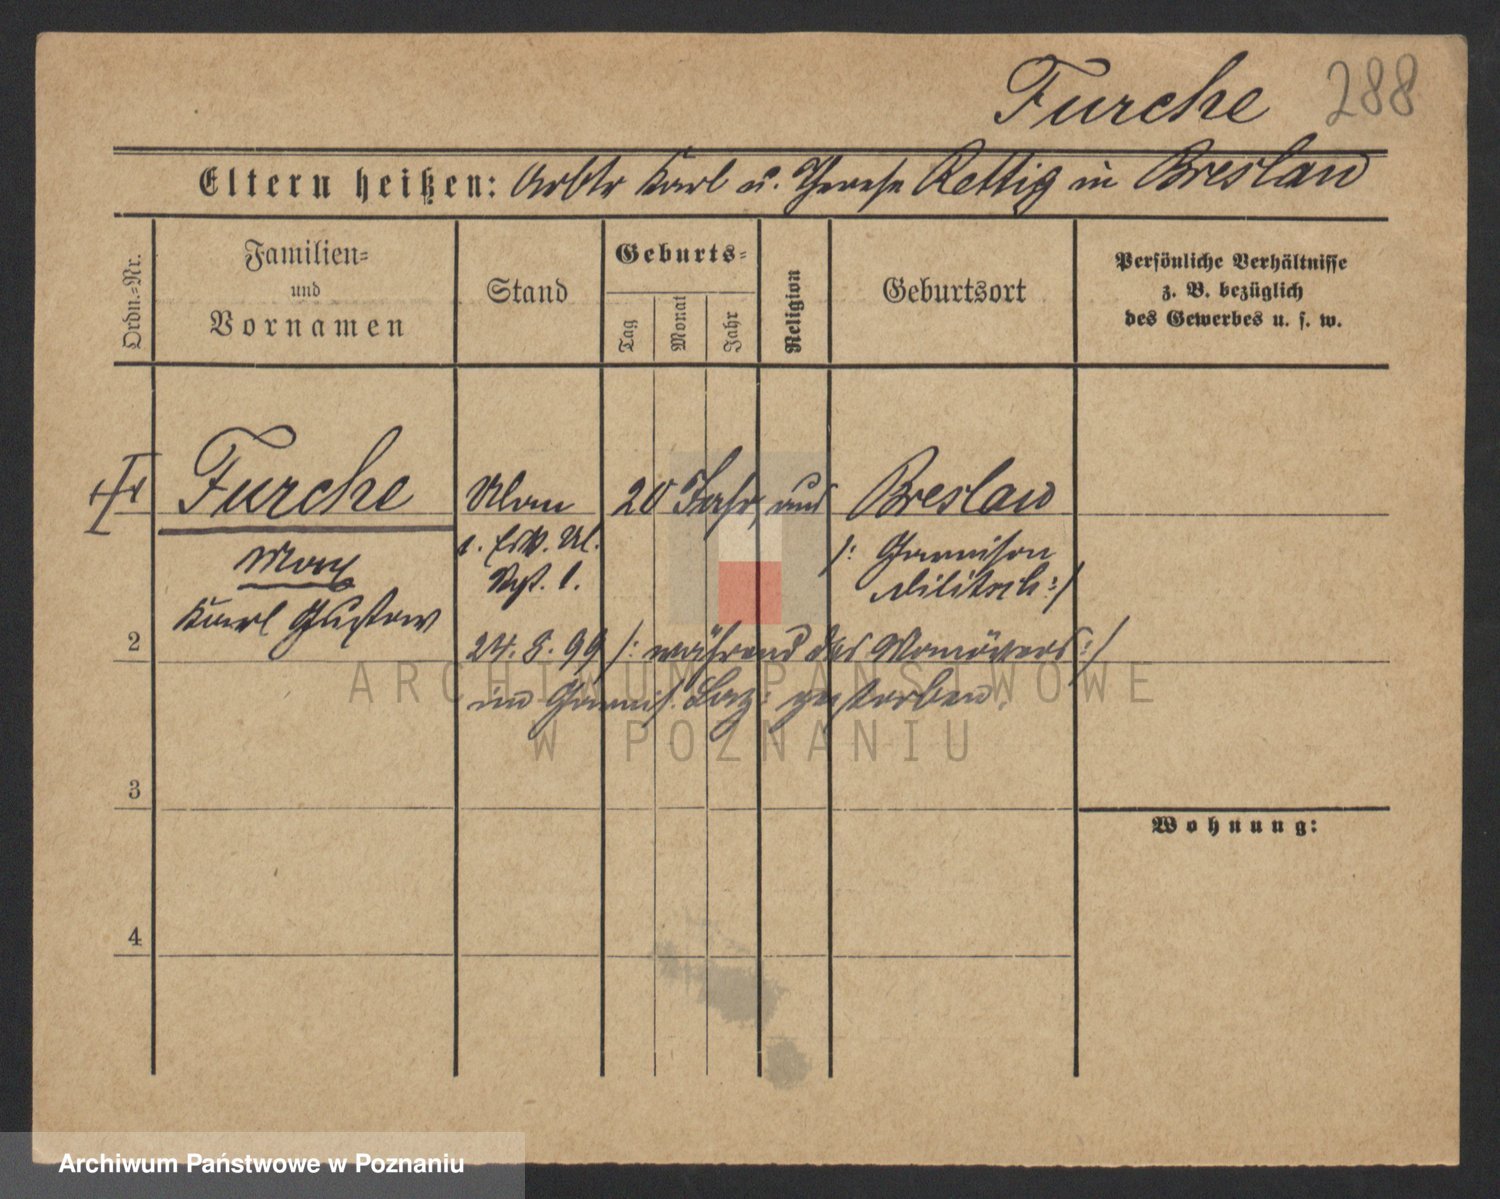 Furche 288
Eltern heißen: Arbtr Karl u. Therese Rettig in Breslau
Ordn.-Nr.
Familien-
und
Vornamen
Stand
Geburts-
Tag
Monat
Jahr
Religion
Geburtsort
Persönliche Verhältnisse
z. B. bezüglich
des Gewerbes u. s. w.
Furche Ulan 20 Jahr, aus Breslau
Max
Karl Gustav
2. Esk. Ul.
Rgt. 1.
/: Garnison
Militsch :/
2
24. 8. 99 /: während des Manövers :/
im Garnis. Laz: gestorben.
3
Wohnung:
4
ARCHIWUM PAŃSTWOWE
W POZNANIU
Archiwum Państwowe w Poznaniu